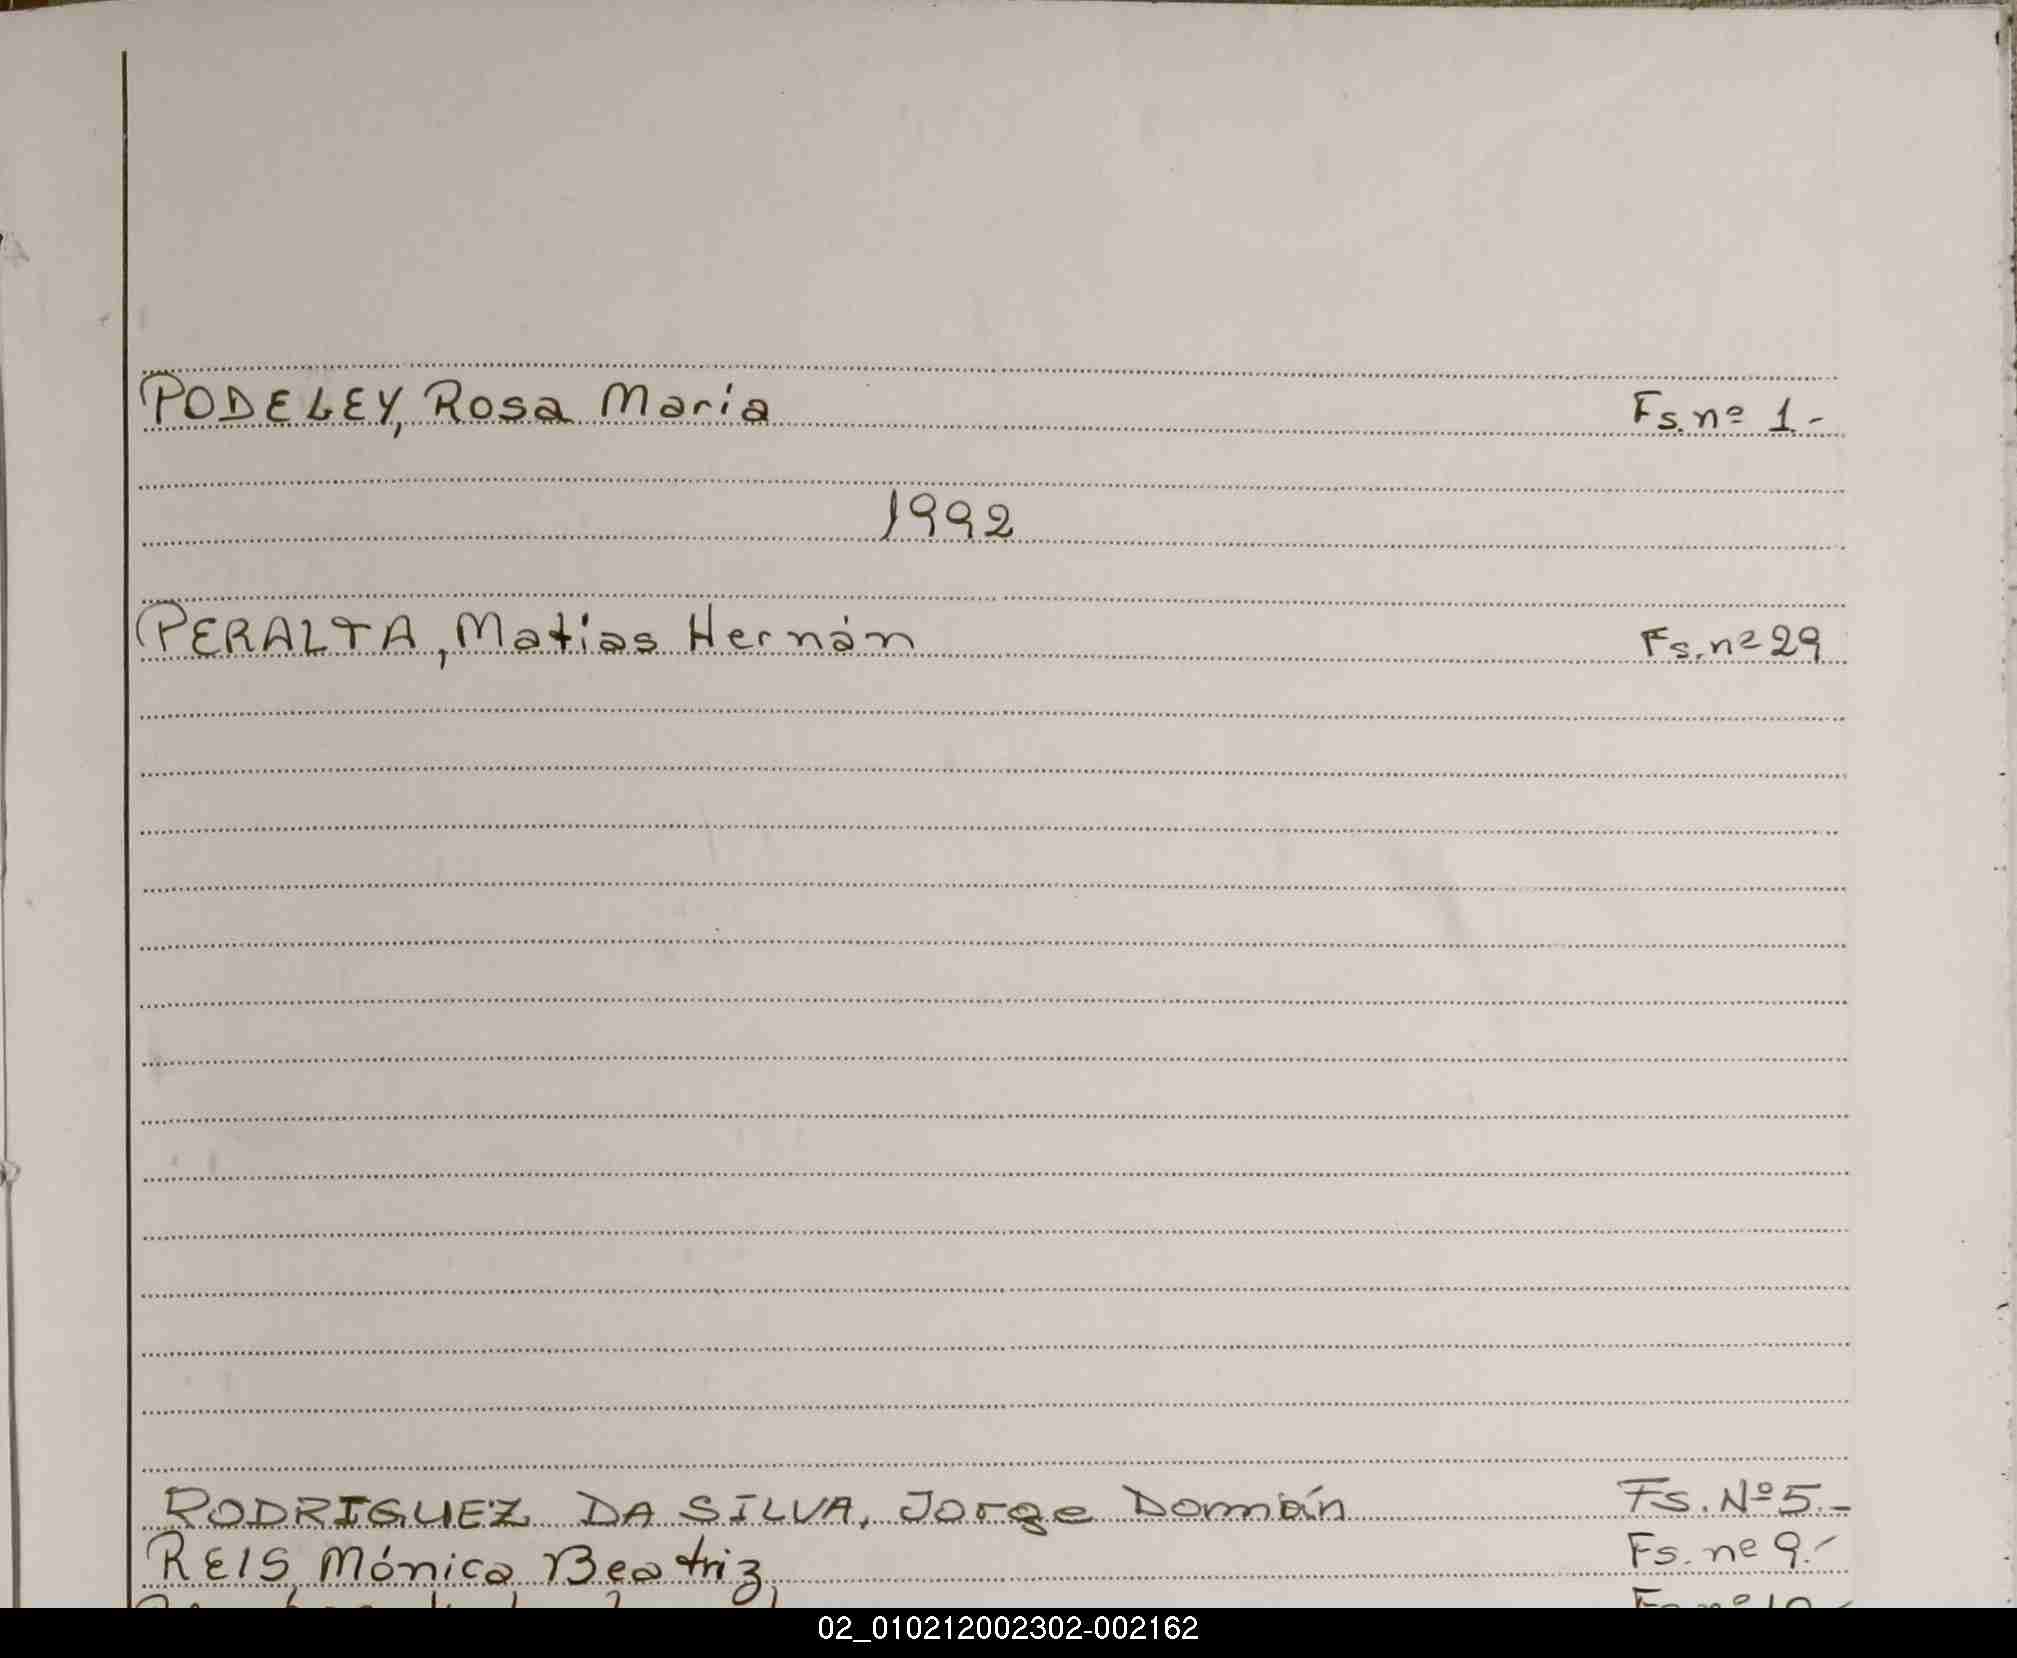 PODELEY, Rosa Maria Fs. nº 1.-
1992
PERALTA, Matías Hernán Fs. nº 29
RODRIGUEZ DA SILVA, Jorge Domián Fs. Nº 5.-
REIS, Mónica Beatriz, Fs. nº 9.-
02_010212002302-002162